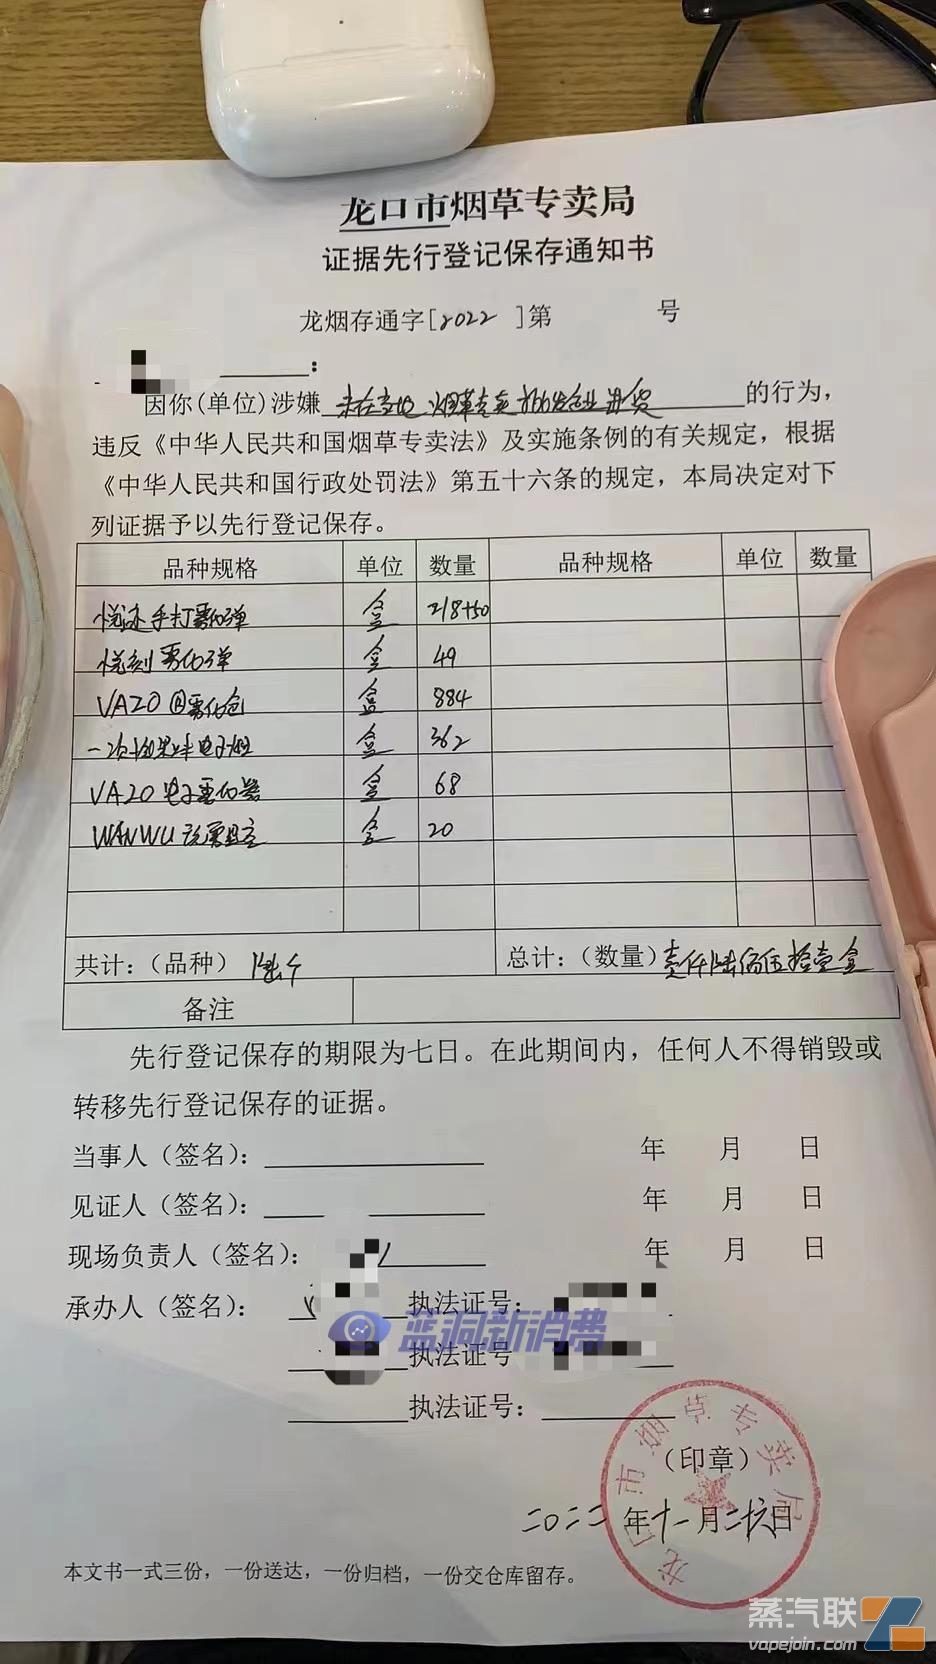 龙口市烟草专卖局
证据先行登记保存通知书
龙烟存通字[2022 ]第 号
:
因你(单位)涉嫌 未在当地烟草专卖批发企业进货 的行为，
违反《中华人民共和国烟草专卖法》及实施条例的有关规定，根据
《中华人民共和国行政处罚法》第五十六条的规定，本局决定对下
列证据予以先行登记保存。
品种规格 单位 数量 品种规格 单位 数量
悦迹手打雾化弹 盒 218+50
悦刻雾化弹 盒 49
VAZO 雾化仓 盒 884
一次性 电子烟 盒 362
VAZO 电子雾化器 盒 68
WANWU 盒 20
共计：（品种） 陆个 总计：（数量）壹仟陆佰伍拾壹盒
备注
先行登记保存的期限为七日。在此期间内，任何人不得销毁或
转移先行登记保存的证据。
当事人（签名）： 年 月 日
见证人（签名）： 年 月 日
现场负责人（签名）： 年 月 日
承办人（签名）： 执法证号：
蓝洞新消费
执法证号
执法证号：
龙口市烟草专卖局
（印章）
二〇二二年十一月二十六日
本文书一式三份，一份送达，一份归档，一份交仓库留存。
蒸汽联
vapejoin.com